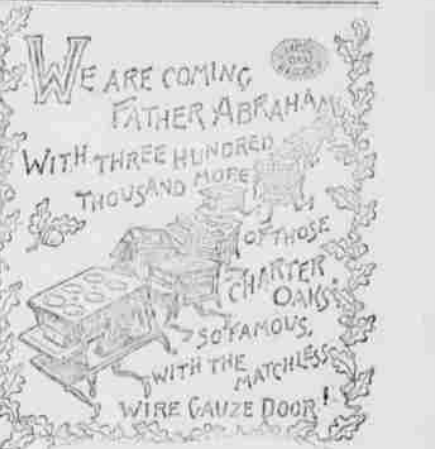 WE ARE COMING
FATHER ABRAHAM,
WITH THREE HUNDRED
THOUSAND MORE
OF THOSE
CHARTER
OAKS
SO FAMOUS,
WITH THE
MATCHLESS
WIRE GAUZE DOOR!